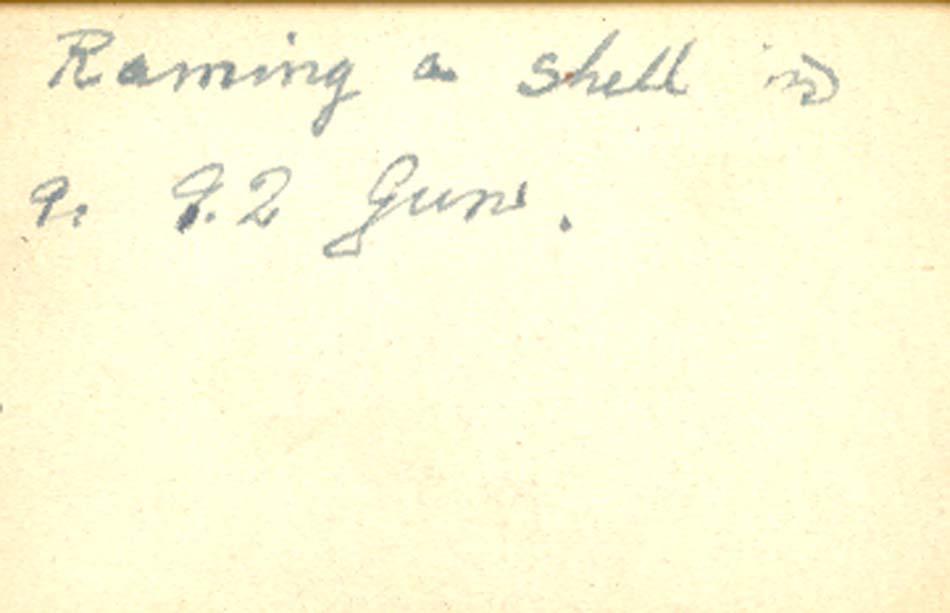 Raming a shell in
a 9.2 Gun.